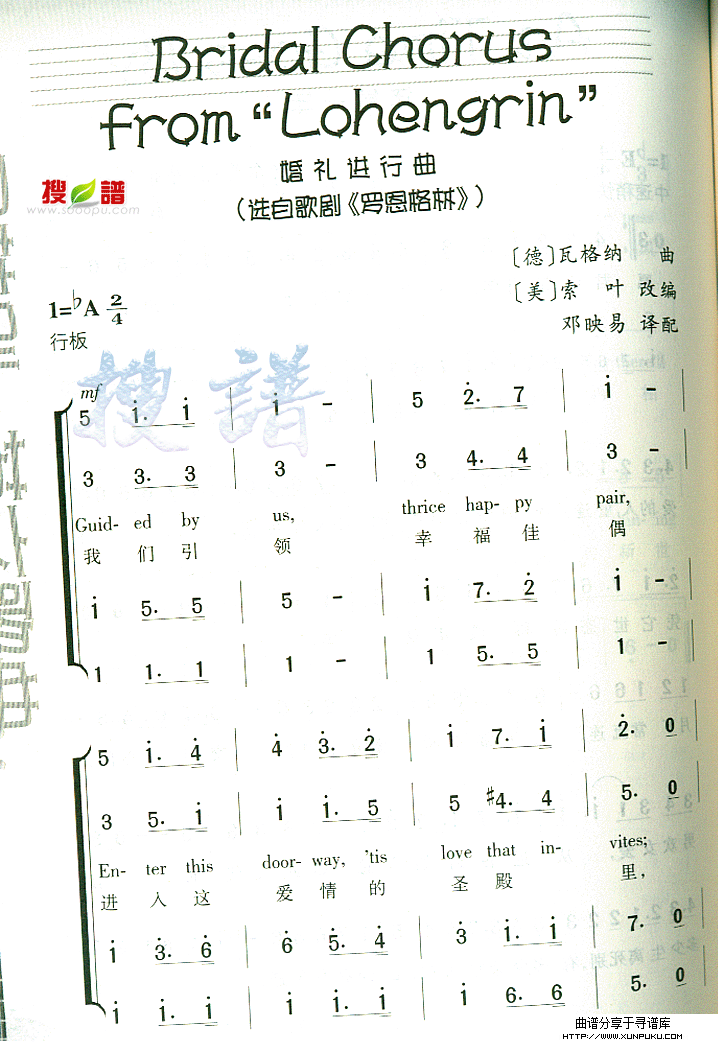 Bridal Chorus
from “Lohengrin”
婚礼进行曲
(选自歌剧《罗恩格林》)
搜谱
www.sooopu.com
〔德〕瓦格纳 曲
1=♭A 2/4
〔美〕索 叶 改编
行板
邓映易 译配
搜谱
mf
5 i̇. i̇ | i̇ - | 5 2̇. 7 | i̇ - |
3 3. 3 | 3 - | 3 4. 4 | 3 - |
Guid- ed by us, thrice hap- py pair,
我 们 引 领 幸 福 佳 偶
i̇ 5. 5 | 5 - | i̇ 7. 2̇ | i̇ - |
1 1. 1 | 1 - | 1 5. 5 | 1 - |
5 i̇. 4̇ | 4̇ 3̇. 2̇ | i̇ 7. i̇ | 2̇. 0 |
3 5. i̇ | i̇ i̇. 5 | 5 #4. 4 | 5. 0 |
En- ter this door- way, 'tis love that in- vites;
进 入 这 爱 情 的 圣 殿 里,
i̇ 3̇. 6̇ | 6̇ 5̇. 4̇ | 3̇ i̇. i̇ | 7. 0 |
i̇ i̇. i̇ | i̇ i̇. i̇ | i̇ 6. 6 | 5. 0 |
曲谱分享于寻谱库
HTTP://WWW.XUNPUKU.COM